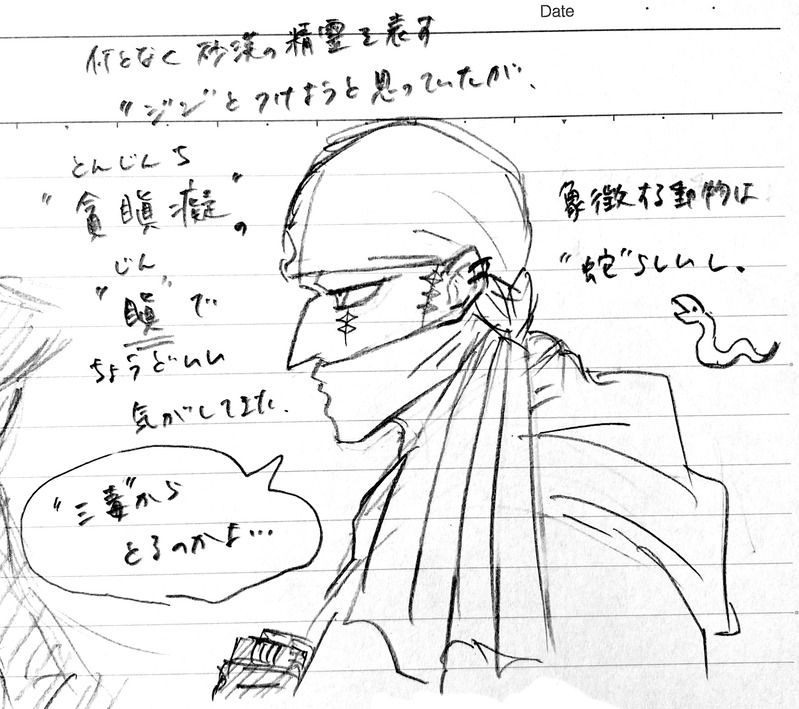 Date
何となく砂漠の精霊を表す
"ジン"とつけようと思っていたが、
とんじんち
"貪瞋癡"の
じん
"瞋"で
ちょうどいい
気がしてきた.
象徴する動物は
"蛇"らしいし。
"三毒"から
とるのかよ…